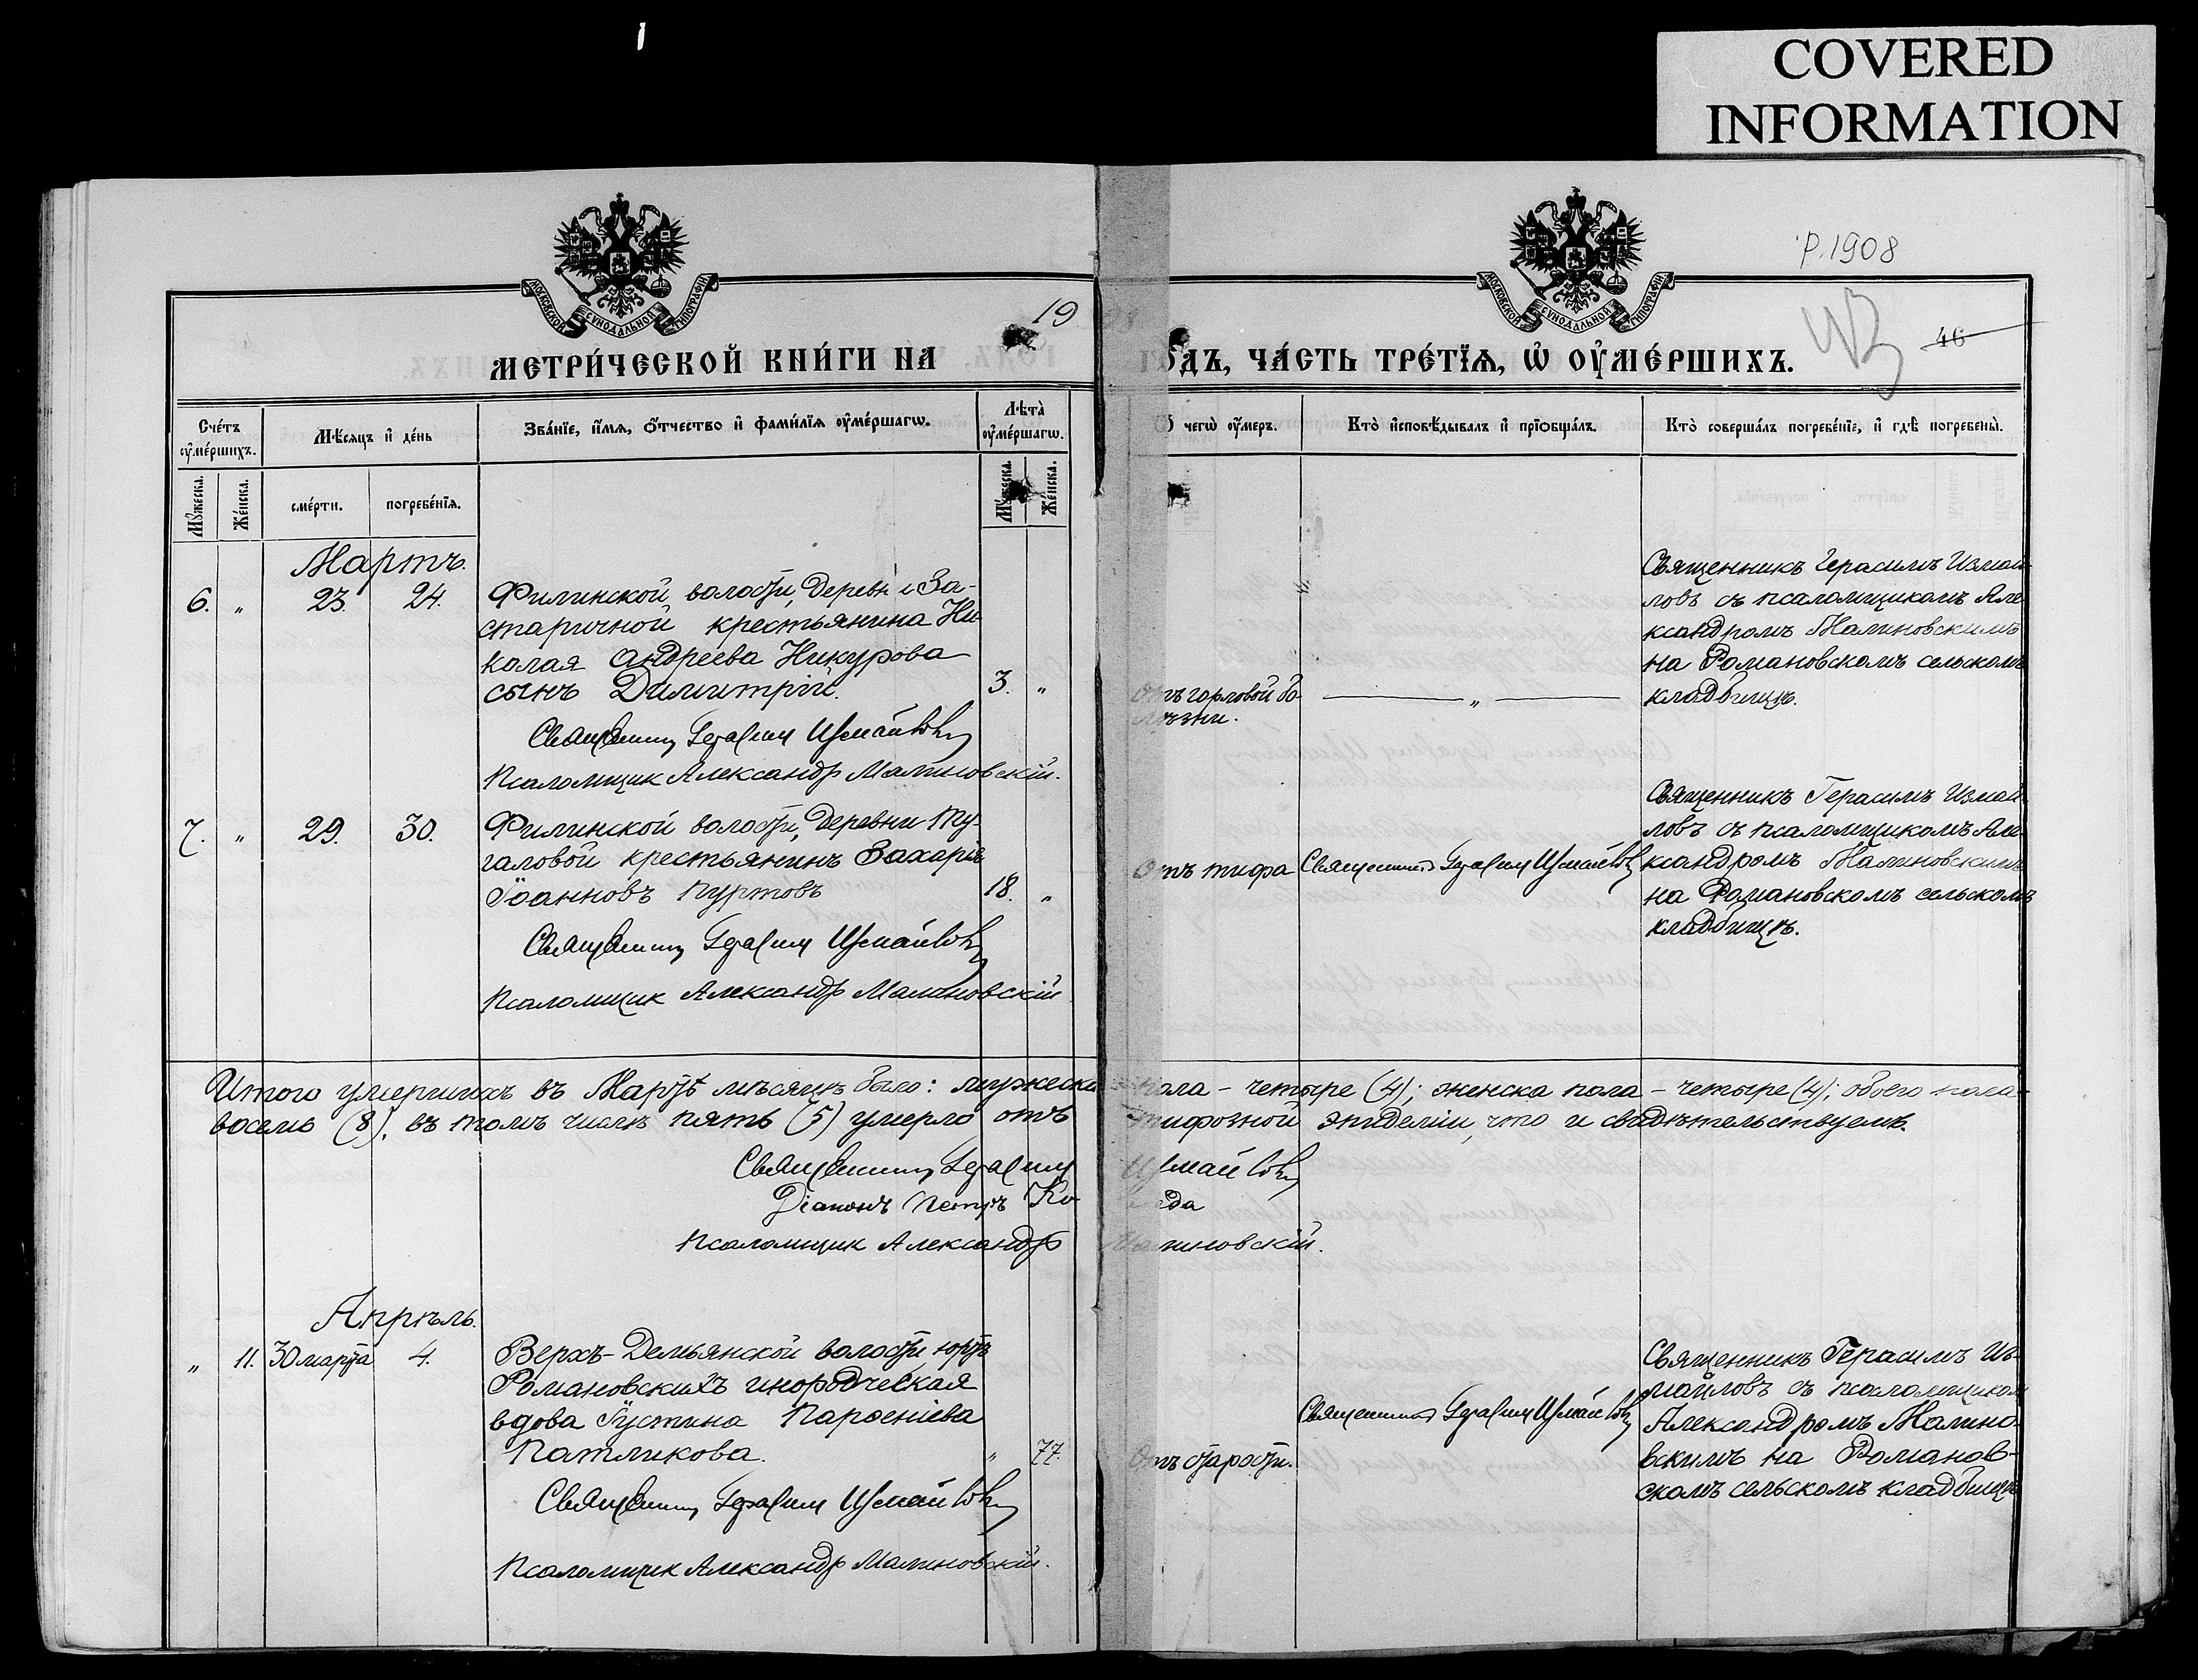 COVERED
INFORMATION
Р. 1908
46
19
МОСКОВСКОЙ СѴНОДАЛЬНОЙ ТИПОГРАФІИ
МОСКОВСКОЙ СѴНОДАЛЬНОЙ ТИПОГРАФІИ
МЕТРИ́ЧЕСКОЙ КНИ́ГИ НА
ГОДЪ, ЧА́СТЬ ТРЕ́ТЇѦ, Ѡ҆ ОУ҆МЕ́РШИХЪ.
Сче́тъ оу҆ме́ршихъ.
Мѣ́сѧцъ и҆ де́нь
Зва́нїе, и҆́мѧ, о҆́тчество и҆ фами́лїѧ оу҆ме́ршагѡ.
Лѣта̀ оу҆ме́ршагѡ.
чегѡ̀ оу҆́меръ.
Кто̀ и҆сповѣ́дывалъ и҆ прїѻбща́лъ.
Кто̀ соверша́лъ погребе́нїе, и҆ гдѣ̀ погребены̀.
Мꙋ́жеска.
Же́нска.
сме́рти.
погребе́нїѧ.
Мꙋ́жеска.
Же́нска.
Мартъ.
6. „ 23. 24.
Филинской волости, Деревни За-
старичной крестьянина Ни-
колая Андреева Никурова
сынъ Димитрій. 3. „
Священникъ Герасимъ Измайловъ
Псаломщик Александр Малиновскій.
Отъ горловой бо-
лѣзни.
„
Священникъ Герасимъ Измай-
ловъ съ псаломщикомъ Але-
ксандромъ Малиновскимъ
на Романовскомъ сельскомъ
кладбищѣ.
7. „ 29. 30.
Филинской волости, деревни Ту-
галовой крестьянинъ Захарія
Іоанновъ Пуртовъ 18. „
Священникъ Герасимъ Измайловъ
Псаломщик Александр Малиновскій
Отъ тифа
Священникъ Герасимъ Измайловъ
Священникъ Герасимъ Измай-
ловъ съ псаломщикомъ Але-
ксандромъ Малиновскимъ
на Романовскомъ сельскомъ
кладбищѣ.
Итого умершихъ въ Мартѣ мѣсяцѣ было: мужеска пола – четыре (4); женска пола – четыре (4); обоего пола –
восемь (8), въ томъ числѣ пять (5) умерло отъ тифозной эпидеміи, что и свидѣтельствуемъ.
Священникъ Герасимъ Измайловъ
Діаконъ Петръ
Псаломщик Александръ Малиновскій.
Апрѣль.
„ 11. 30 марта 4.
Верхъ-Демьянской волости юртъ
Романовскихъ инородческая
вдова Іустина Парѳеніева
Патликова. „ 77.
Священникъ Герасимъ Измайловъ
Псаломщик Александр Малиновскій.
Отъ старости.
Священникъ Герасимъ Измайловъ
Священникъ Герасимъ Из-
майловъ съ псаломщиком
Александромъ Малино-
вскимъ на Романов-
скомъ сельскомъ кладбищѣ